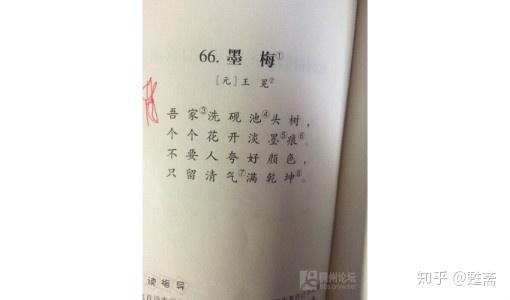 66. 墨 梅①
〔元〕王 冕②
吾家③洗砚池④头树，
个个花开淡墨⑤痕⑥。
不要人夸好颜色，
只留清气⑦满乾坤⑧。
读指导
知乎 @甦斋